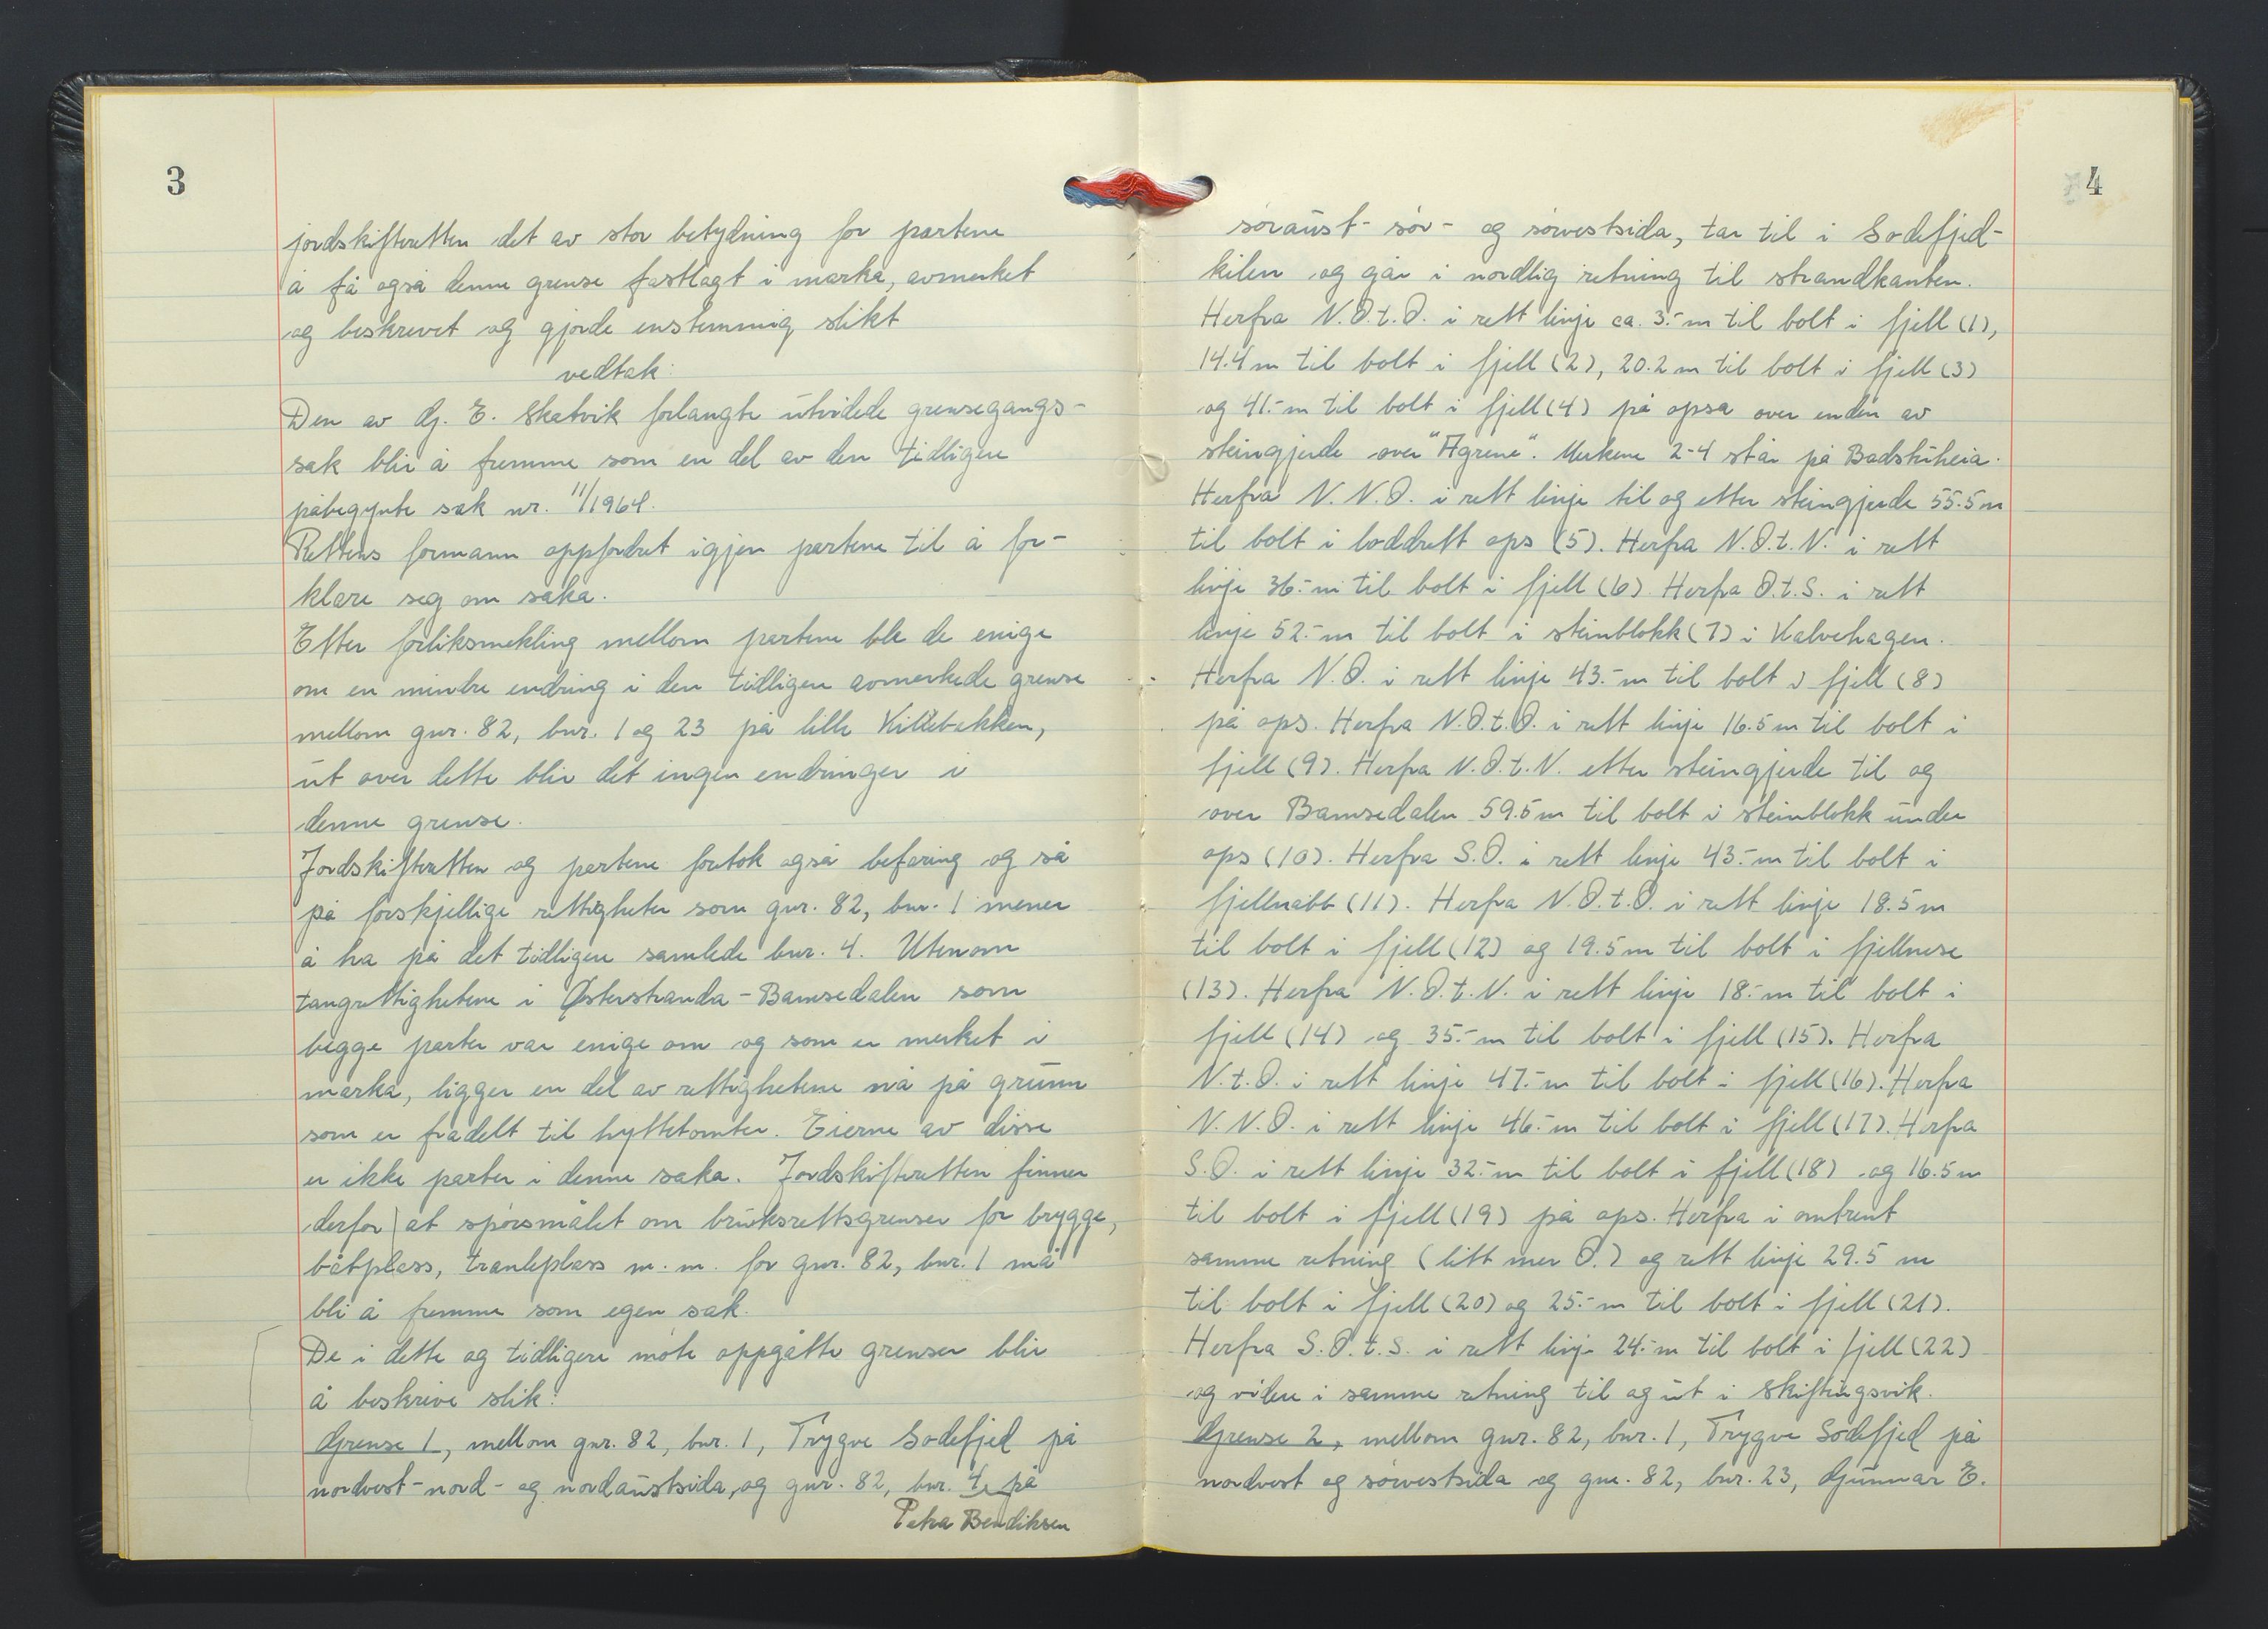 3
jordskifteretten det av stor betydning for partene
å få også denne grense fastlagt i marka, avmerket
og beskrevet og gjorde enstemmig slikt
vedtak:
Den av Gj. E. Skatvik forlangte utvidede grensegangs-
sak blir å fremme som en del av den tidligere
påbegynte sak nr. 11/1964.
Rettens formann oppfordret igjen partene til å for-
klare seg om saka.
Etter forliksmekling mellom partene ble de enige
om en mindre endring i den tidligere avmerkede grense
mellom gnr. 82, bnr. 1 og 23 på lille Killebakken,
ut over dette blir det ingen endringer i
denne grense.
Jordskifteretten og partene foretok også befaring og så
på forskjellige rettigheter som gnr. 82, bnr. 1 mener
å ha på det tidligere samlede bnr. 4. Utenom
tangrettighetene i Østerstranda - Bamsedalen som
begge parter var enige om og som er merket i
marka, ligger en del av rettighetene nå på grunn
som er fradelt til hyttetomter. Eierne av disse
er ikke parter i denne saka. Jordskifteretten finner
derfor at spørsmålet om bruksrettsgrenser for brygge,
båtplass, tranleplass m.m. for gnr. 82, bnr. 1 må
bli å fremme som egen sak.
De i dette og tidligere møte oppgåtte grenser blir
å beskrive slik:
Grense 1, mellom gnr. 82, bnr. 1, Trygve Sodefjed på
nordvest- nord- og nordaustsida, og gnr. 82, bnr. 4, på
Petra Bendiksen
4
søraust- sør- og sørvestsida, tar til i Sodefjed-
kilen og går i nordlig retning til strandkanten.
Herfra N.Ø.t.Ø. i rett linje ca. 3.- m til bolt i fjell (1),
14.4 m til bolt i fjell (2), 20.2 m til bolt i fjell (3)
og 41.- m til bolt i fjell (4) på opsa over enden av
steingjerde over "Agrene". Merkene 2-4 står på Badstuheia.
Herfra N.N.Ø. i rett linje til og etter steingjerde 55.5 m
til bolt i loddrett ops (5). Herfra N.Ø.t.N. i rett
linje 36.- m til bolt i fjell (6). Herfra Ø.t.S. i rett
linje 52.- m til bolt i steinblokk (7) i Kalvehagen.
Herfra N.Ø. i rett linje 43.- m til bolt i fjell (8)
på ops. Herfra N.Ø.t.Ø. i rett linje 16.5 m til bolt i
fjell (9). Herfra N.Ø.t.N. etter steingjerde til og
over Bamsedalen 59.5 m til bolt i steinblokk under
ops (10). Herfra S.Ø. i rett linje 43.- m til bolt i
fjellnabb (11). Herfra N.Ø.t.Ø. i rett linje 18.5 m
til bolt i fjell (12) og 19.5 m til bolt i fjellnese
(13). Herfra N.Ø.t.N. i rett linje 18.- m til bolt i
fjell (14) og 35.- m til bolt i fjell (15). Herfra
N.t.Ø. i rett linje 47.- m til bolt i fjell (16). Herfra
N.N.Ø. i rett linje 46.- m til bolt i fjell (17). Herfra
S.Ø. i rett linje 32.- m til bolt i fjell (18) og 16.5 m
til bolt i fjell (19) på ops. Herfra i omtrent
samme retning (litt mer Ø.) og rett linje 29.5 m
til bolt i fjell (20) og 25.- m til bolt i fjell (21).
Herfra S.Ø.t.S. i rett linje 24.- m til bolt i fjell (22)
og videre i samme retning til og ut i Skiftingsvik.
Grense 2, mellom gnr. 82, bnr. 1, Trygve Sodefjed på
nordvest og sørvestsida og gnr. 82, bnr. 23, Gunnar E.